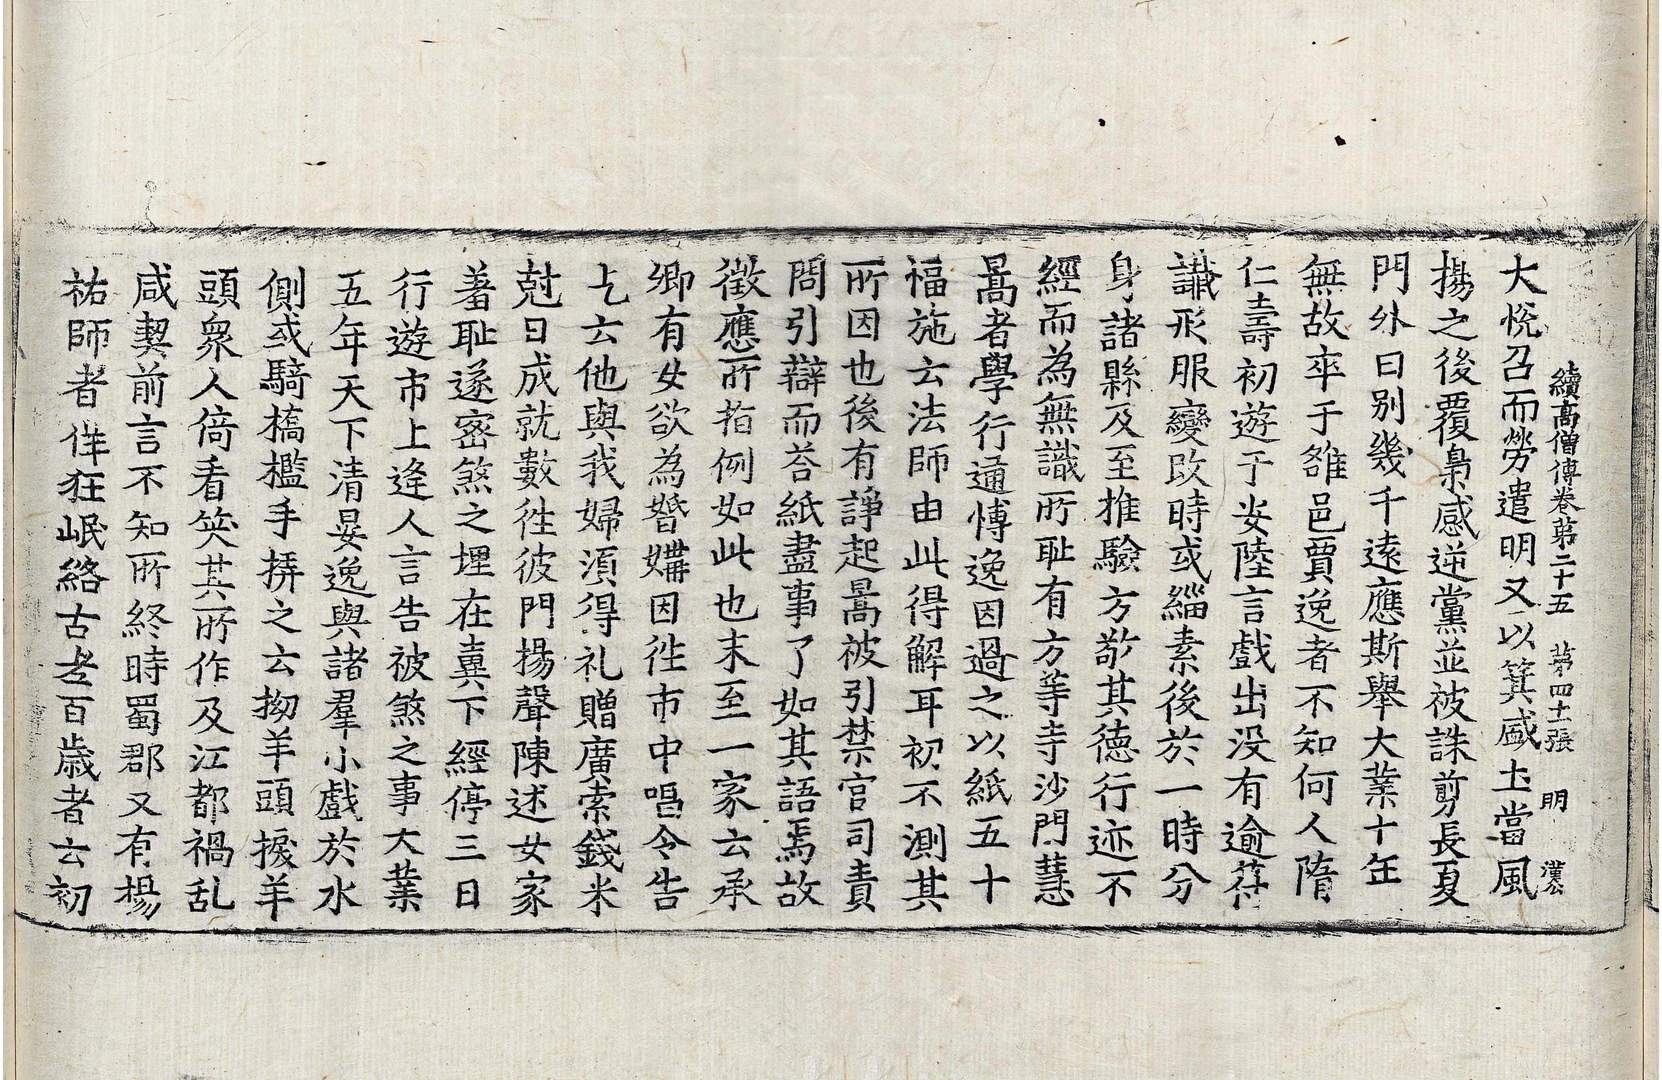 續高僧傳卷苐二十五 苐四十一張 明 漢公
大悅召而勞遣明又以箕盛土當風
揚之後覆梟感逆黨並被誅剪長夏
門外日別幾千遠應斯舉大業十年
無故卒于雒邑賈逸者不知何人隋
仁壽初遊于安陸言戲出沒有逾符
讖形服變改時或緇素後於一時分
身諸縣及至推驗方敬其德行迹不
經而為無識所耻有方等寺沙門慧
暠者學行通博逸因過之以紙五十
福施云法師由此得解耳初不測其
所因也後有諍起暠被引禁官司責
問引辯而荅紙盡事了如其語焉故
徵應所指例如此也末至一家云承
卿有女欲為婚媾因徃市中唱令告
乞云他與我婦須得礼贈廣索錢米
尅日成就數徃彼門揚聲陳述女家
著耻遂密煞之埋在糞下經停三日
行遊市上逢人言告被煞之事大業
五年天下清晏逸與諸羣小戲於水
側或騎橋檻手搼之云拗羊頭捩羊
頭衆人倚看笑其所作及江都禍乱
咸契前言不知所終時蜀郡又有楊
祐師者佯狂岷絡古老百歲者云初